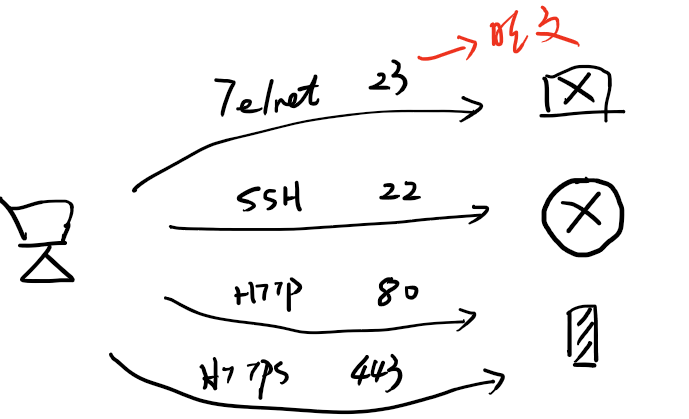 Telnet 23 → 明文
SSH 22
HTTP 80
HTTPS 443